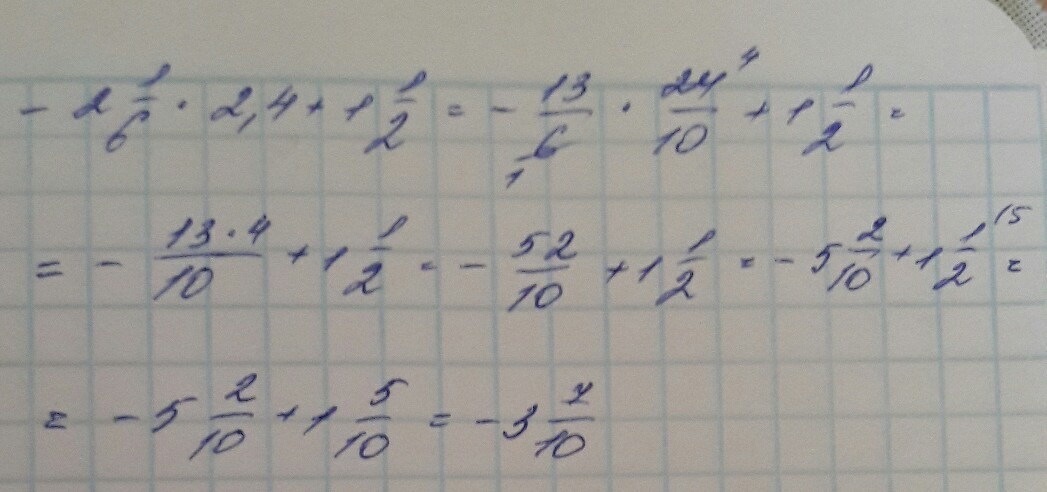 - 2 1/6 · 2,4 + 1 1/2 = - 13/6 1 · 24/10 4 + 1 1/2 =
= - 13·4/10 + 1 1/2 = - 52/10 + 1 1/2 = - 5 2/10 + 1 1/2 15 =
= - 5 2/10 + 1 5/10 = - 3 7/10